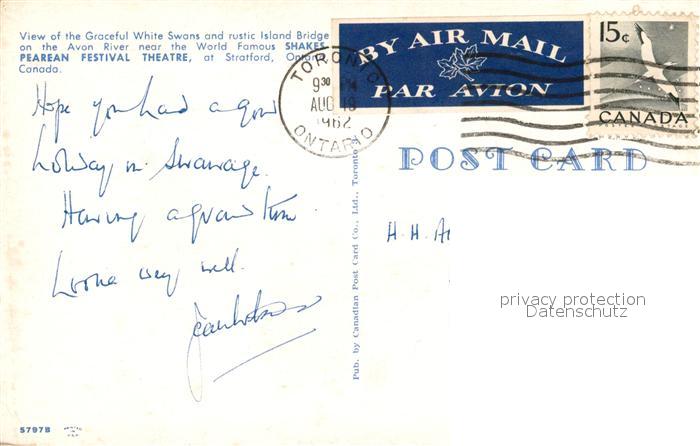 View of the Graceful White Swans and rustic Island Bridge
on the Avon River near the World Famous SHAKES-
PEAREAN FESTIVAL THEATRE, at Stratford, Ontario
Canada.
BY AIR MAIL
PAR AVION
TORONTO
9 30 PM
AUG 18
1962
ONTARIO
15¢
CANADA
POST CARD
Hope you had a good
holiday in Swanage.
Having a grand time
very well.
H. H. A
Pub. by Canadian Post Card Co., Ltd., Toronto
privacy protection
Datenschutz
5797B